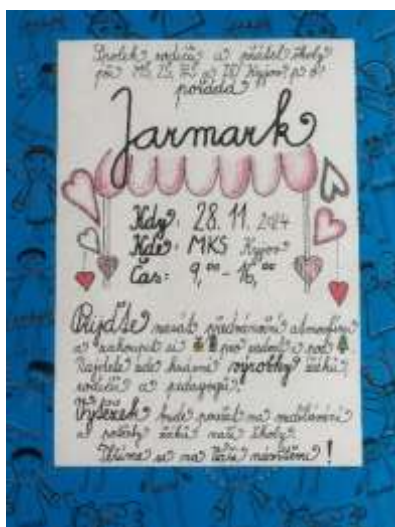 Spolek rodičů a přátel školy
při MŠ, ZŠ, a Kyjov
pořádá
Jarmark
Kdy: 28.11. 2024
Kde: MKS Kyjov
Čas: 9,00 - 16,00
Přijďte nasát předvánoční atmosféru
a zakoupit si pro radost a pod
Najdete zde krásné výrobky žáků,
rodičů a pedagogů.
Výtěžek bude použit na vzdělávání
a potřeby žáků naší školy.
Těšíme se na Vaši návštěvu!